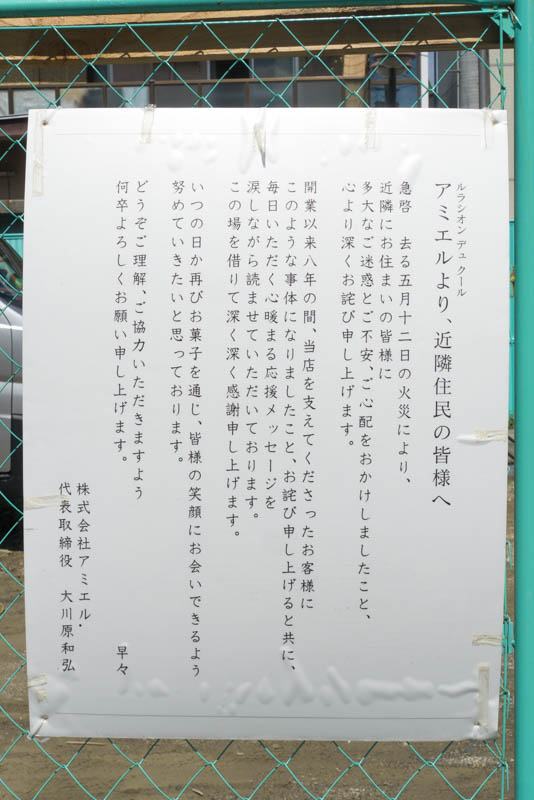 ルラシオン デュ クール
アミエルより、近隣住民の皆様へ
急啓　去る五月十二日の火災により、
近隣にお住まいの皆様に
多大なご迷惑とご不安、ご心配をおかけしましたこと、
心より深くお詫び申し上げます。
開業以来八年の間、当店を支えてくださったお客様に
このような事体になりましたこと、お詫び申し上げると共に、
毎日いただく心暖まる応援メッセージを
涙しながら読ませていただいております。
この場を借りて深く深く感謝申し上げます。
いつの日か再びお菓子を通じ、皆様の笑顔にお会いできるよう
努めていきたいと思っております。
どうぞご理解、ご協力いただきますよう
何卒よろしくお願い申し上げます。
早々
株式会社アミエル・
代表取締役　大川原和弘